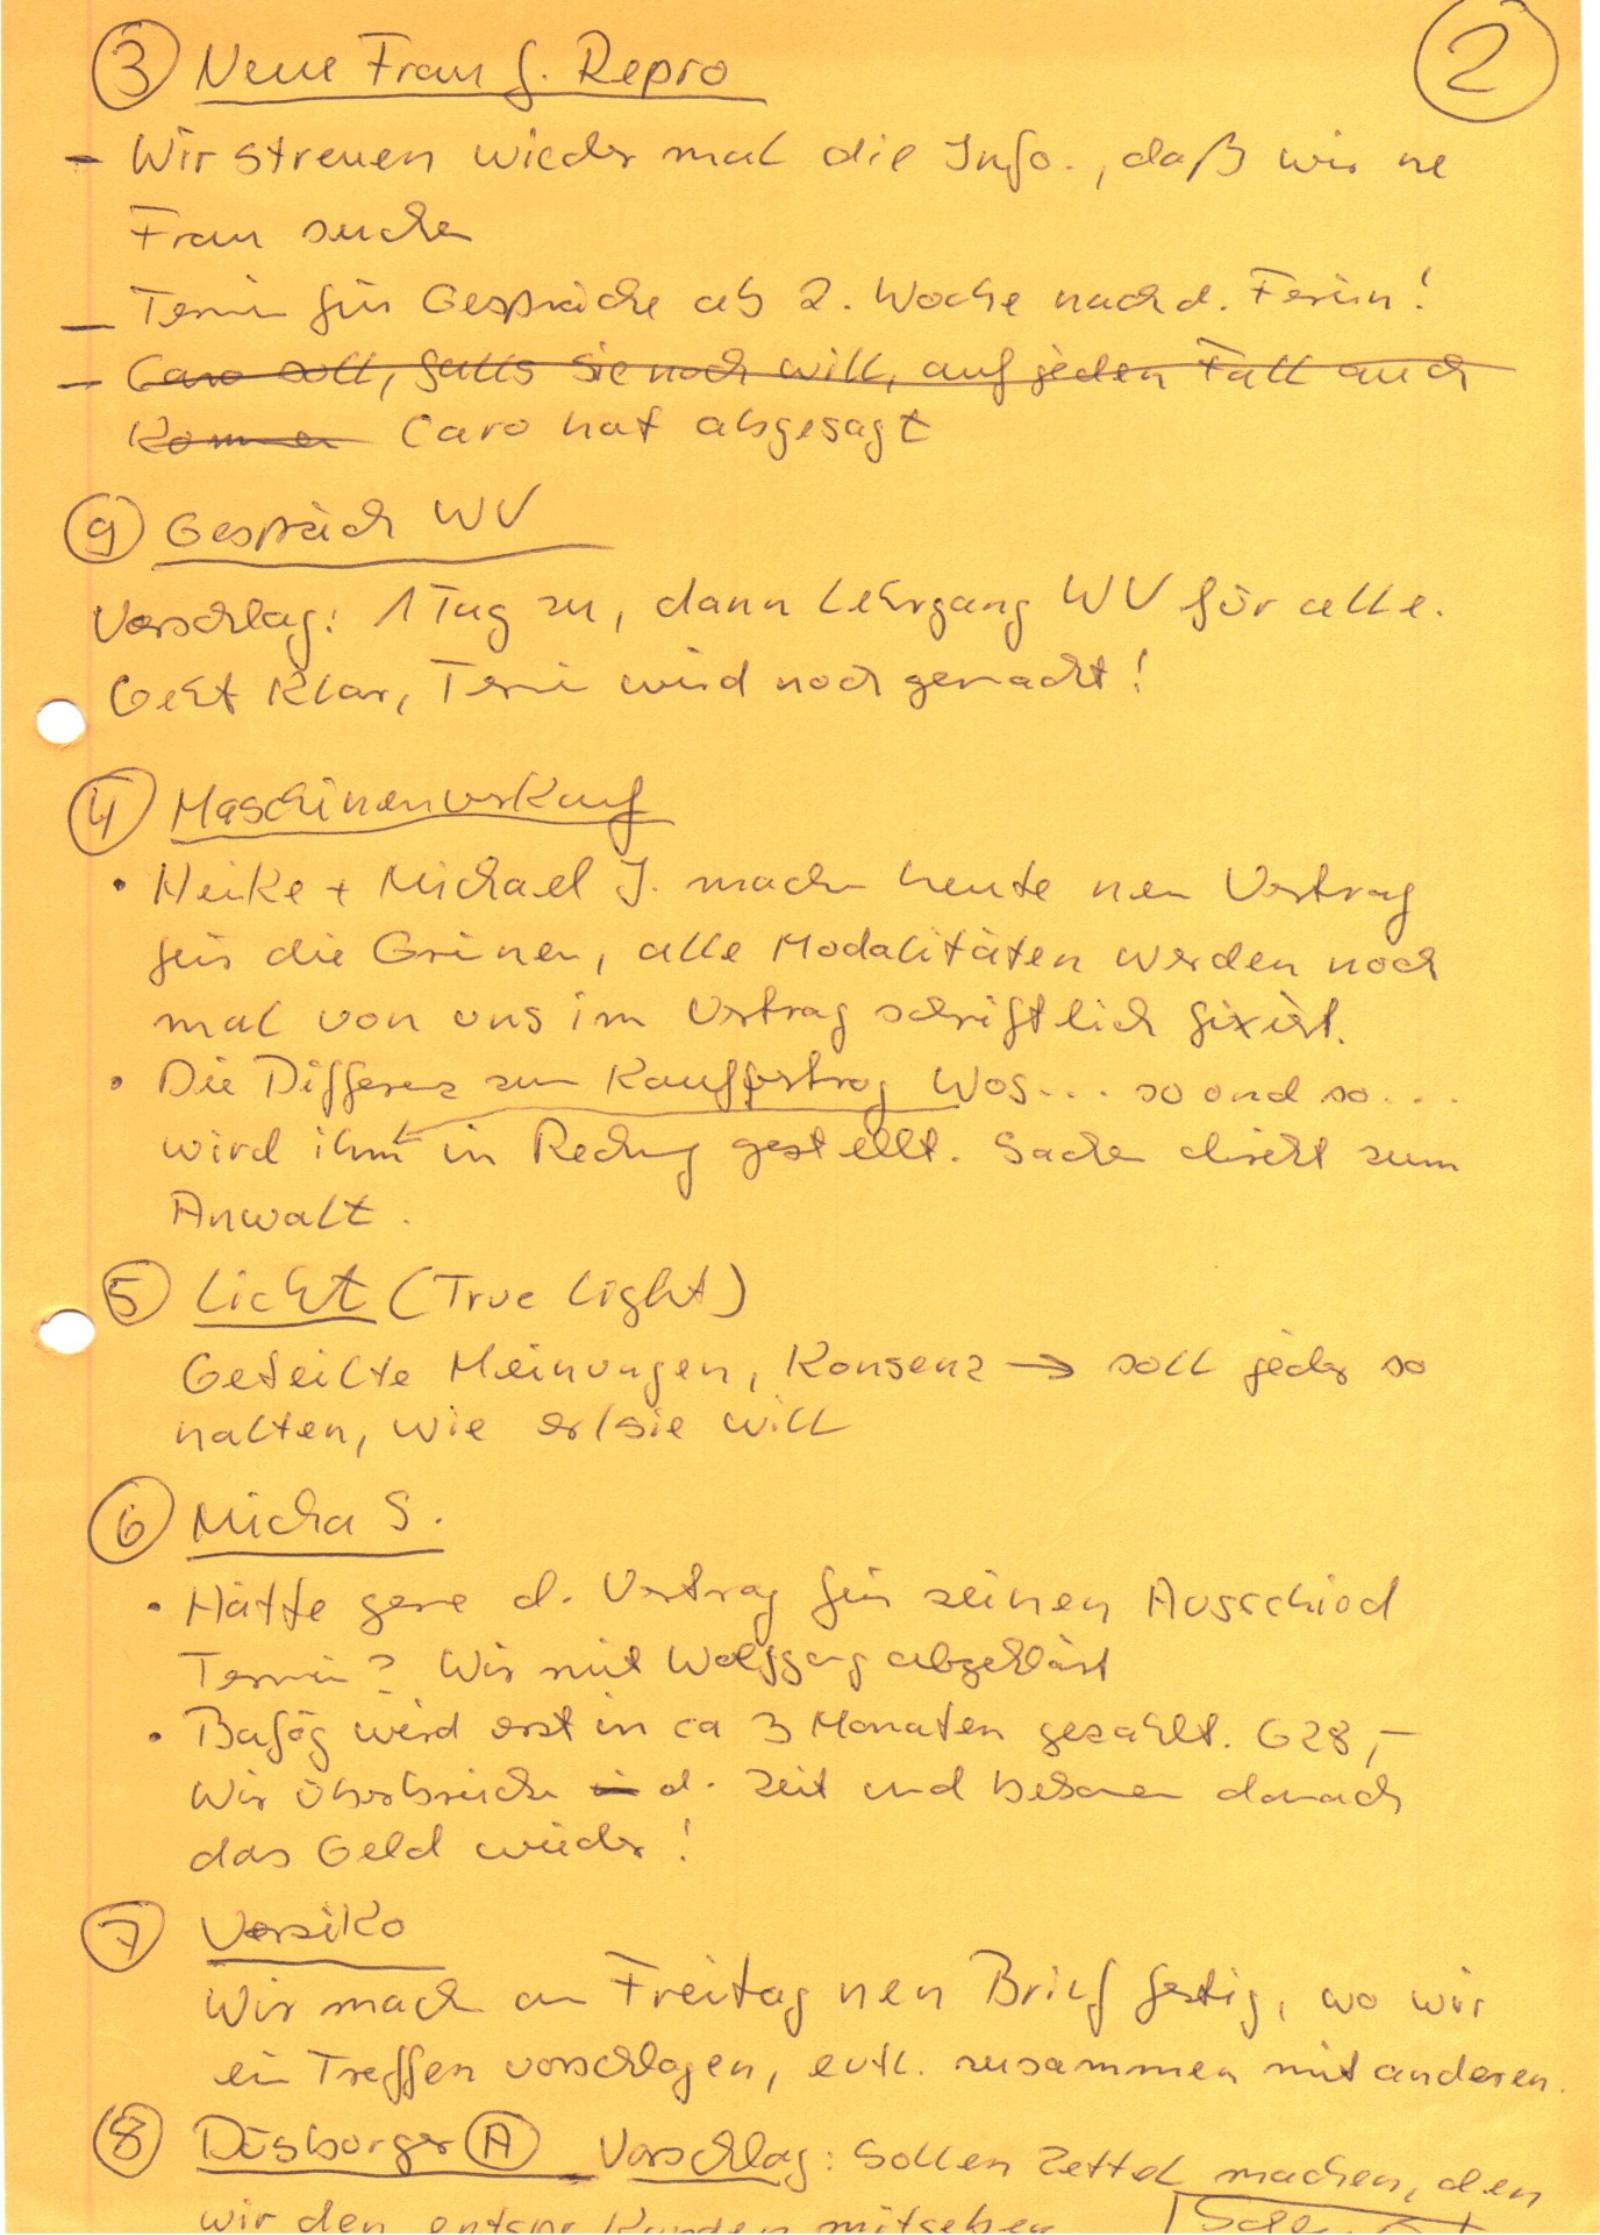 2
③ Neue Frau f. Repro
- Wir streuen wieder mal die Info., daß wir ne
Frau suchen
- Termin für Gespräche ab 2. Woche nach d. Ferien!
- Caro soll, falls sie noch will, auf jeden Fall auch
kommen Caro hat abgesagt
⑨ Gespräch WV
Vorschlag: 1 Tag zu, dann Lehrgang WV für alle.
Geht klar, Termin wird noch gemacht!
④ Maschinenverkauf
• Heike + Michael J. machen heute nen Vertrag
für die Grünen, alle Modalitäten werden noch
mal von uns im Vertrag schriftlich fixiert.
• Die Differenz zum Kaufvertrag Wos... so und so...
wird ihm in Rechng gestellt. Sache direkt zum
Anwalt.
⑤ Licht (True Light)
Geteilte Meinungen, Konsenz → soll jeder so
halten, wie er/sie will
⑥ Micha S.
• Hätte gerne d. Vertrag für seinen Ausschied
Termin? Wir mit Wolfgang abgeklärt
• Bafög wird erst in ca 3 Monaten gezahlt. 628,-
Wir überbrücken d. Zeit und bekommen danach
das Geld wieder!
⑦ Versiko
Wir machen am Freitag nen Brief fertig, wo wir
ein Treffen vorschlagen, evtl. zusammen mit anderen.
⑧ Duisburger Ⓐ Vorschlag: Sollen Zettel machen, den
wir den entspr Kunden mitgeben